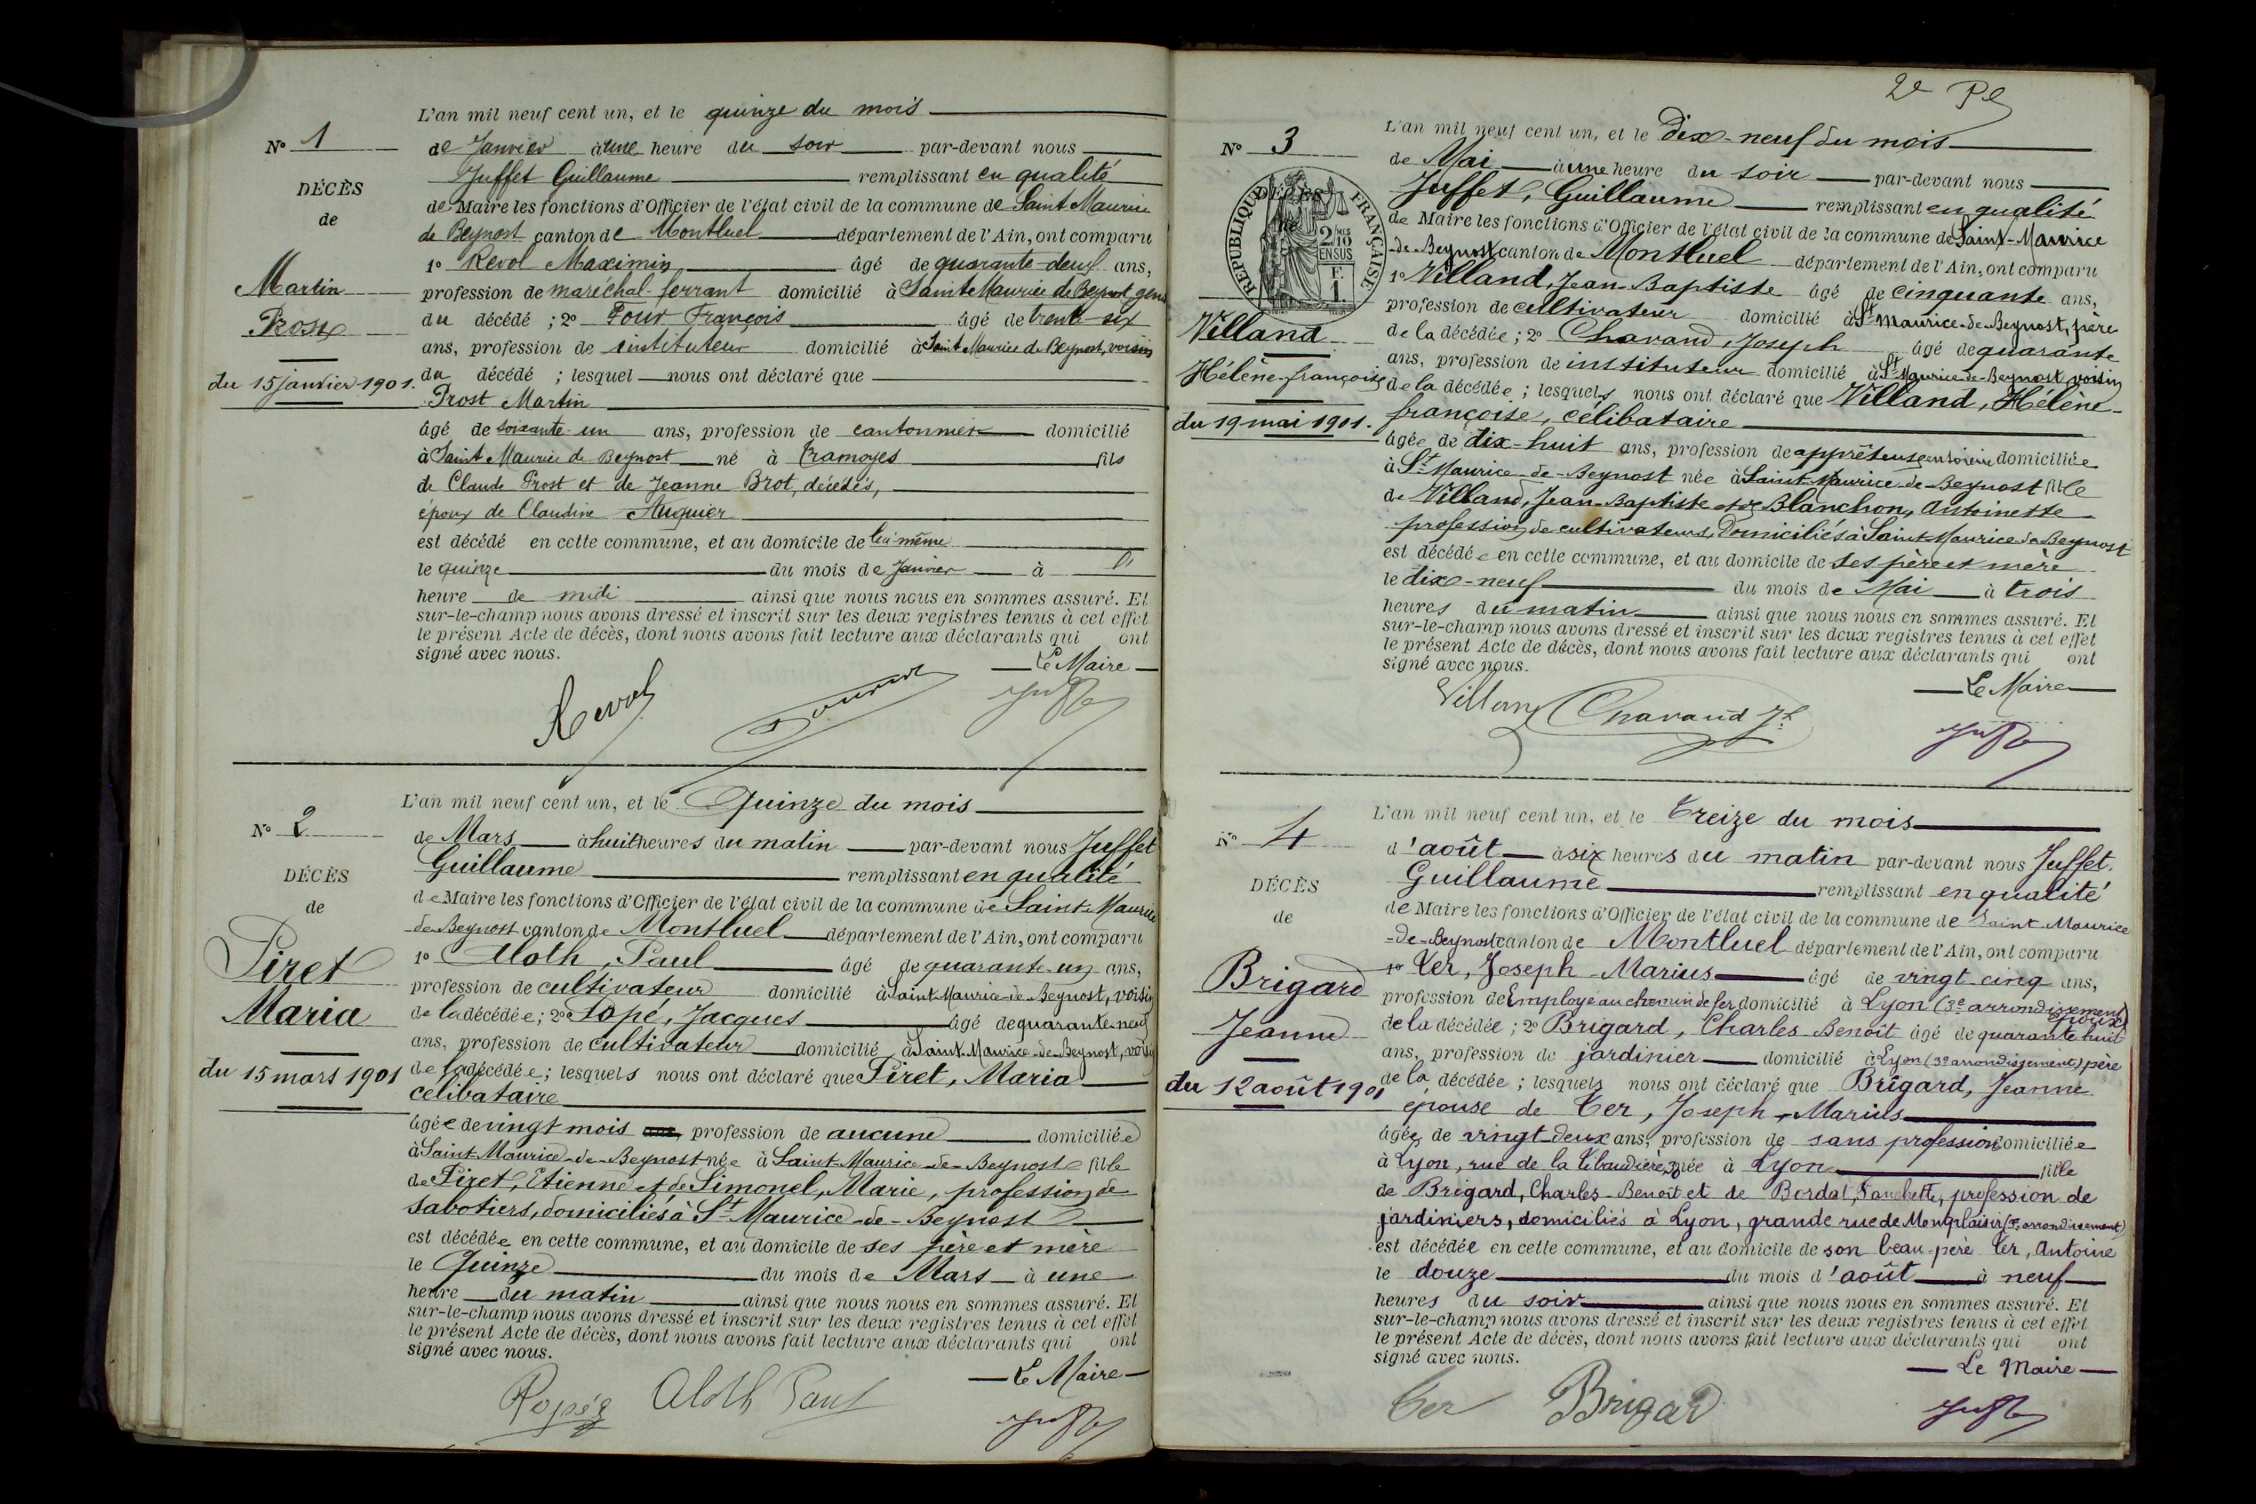 L'an mil neuf cent un, et le quinze du mois
N° 1
de Janvier à une heure du soir par-devant nous
Juffet Guillaume remplissant en qualité
DÉCÈS
de Maire les fonctions d'Officier de l'état civil de la commune de Saint Maurice
de
de Beynost canton de Montluel département de l'Ain, ont comparu
1° Revol Maximin âgé de quarante-deux ans,
Martin
profession de maréchal-ferrant domicilié à Saint Maurice de Beynost, gendre
Prost
du décédé ; 2° François âgé de trente-six
ans, profession de instituteur domicilié à Saint Maurice de Beynost, voisin
du 15 janvier 1901.
du décédé ; lesquel nous ont déclaré que
Prost Martin
âgé de soixante-un ans, profession de cantonnier domicilié
à Saint Maurice de Beynost né à Tramoyes fils
de Claude Prost et de Jeanne Brot, décédés,
époux de Claudine Auguier
est décédé en cette commune, et au domicile de lui-même
le quinze du mois de Janvier à
heure de midi ainsi que nous nous en sommes assuré. Et
sur-le-champ nous avons dressé et inscrit sur les deux registres tenus à cet effet
le présent Acte de décès, dont nous avons fait lecture aux déclarants qui ont
signé avec nous.
Le Maire
Revol
L'an mil neuf cent un, et le Quinze du mois
N° 2
de Mars à huit heures du matin par-devant nous Juffet
Guillaume remplissant en qualité
DÉCÈS
de Maire les fonctions d'Officier de l'état civil de la commune de Saint-Maurice
de
de Beynost canton de Montluel département de l'Ain, ont comparu
1° Aloth, Paul âgé de quarante-un ans,
Piret
profession de cultivateur domicilié à Saint-Maurice-de-Beynost, voisin
Maria
de la décédée ; 2° Ropé, Jacques âgé de quarante-neuf
ans, profession de cultivateur domicilié à Saint-Maurice-de-Beynost, voisin
du 15 mars 1901
de la décédée ; lesquels nous ont déclaré que Piret, Maria
célibataire
âgée de vingt mois ans, profession de aucune domiciliée
à Saint-Maurice-de-Beynost née à Saint-Maurice-de-Beynost fille
de Piret, Etienne et de Simonel, Marie, profession de
sabotiers, domiciliés à St-Maurice-de-Beynost
est décédée en cette commune, et au domicile de ses père et mère
le Quinze du mois de Mars à une
heure du matin ainsi que nous nous en sommes assuré. Et
sur-le-champ nous avons dressé et inscrit sur les deux registres tenus à cet effet
le présent Acte de décès, dont nous avons fait lecture aux déclarants qui ont
signé avec nous.
Le Maire
Ropé Aloth Paul
2e
L'an mil neuf cent un, et le Dix-neuf du mois
N° 3
de Mai à une heure du soir par-devant nous
DÉCÈS
Juffet, Guillaume remplissant en qualité
de
de Maire les fonctions d'Officier de l'état civil de la commune de Saint-Maurice
RÉPUBLIQUE FRANÇAISE
2/10 EN SUS
F. 1.
de-Beynost canton de Montluel département de l'Ain, ont comparu
1° Villand, Jean-Baptiste âgé de cinquante ans,
profession de cultivateur domicilié à St Maurice-de-Beynost, père
Villand
de la décédée ; 2° Chavand, Joseph âgé de quarante
ans, profession de instituteur domicilié à St-Maurice-de-Beynost voisin
Hélène-françoise
de la décédée ; lesquels nous ont déclaré que Villand, Hélène-
du 19 mai 1901.
françoise, célibataire
âgée de dix-huit ans, profession de apprêteuse en soierie domiciliée
à St-Maurice-de-Beynost née à Saint-Maurice-de-Beynost fille
de Villand, Jean-Baptiste et de Blanchon, Antoinette
profession de cultivateurs, Domiciliés à Saint-Maurice-de-Beynost
est décédée en cette commune, et au domicile de ses père et mère
le dix-neuf du mois de Mai à trois
heures du matin ainsi que nous nous en sommes assuré. Et
sur-le-champ nous avons dressé et inscrit sur les deux registres tenus à cet effet
le présent Acte de décès, dont nous avons fait lecture aux déclarants qui ont
signé avec nous.
Le Maire
Villand Chavand Jh
L'an mil neuf cent un, et le treize du mois
N° 4
d'août à six heures du matin par-devant nous Juffet
Guillaume remplissant en qualité
DÉCÈS
de Maire les fonctions d'Officier de l'état civil de la commune de Saint Maurice
de
-de-Beynost canton de Montluel département de l'Ain, ont comparu
1° Ter, Joseph-Marius âgé de vingt-cinq ans,
Brigard
profession de Employé au chemin de fer domicilié à Lyon (3e arrondissement) époux
Jeanne
de la décédée ; 2° Brigard, Charles-Benoît âgé de quarante huit
ans, profession de jardinier domicilié à Lyon (3e arrondissement) père
du 12 août 1901
de la décédée ; lesquels nous ont déclaré que Brigard, Jeanne
épouse de Ter, Joseph-Marius
âgée de vingt-deux ans, profession de sans profession domiciliée
à Lyon, rue de la née à Lyon fille
de Brigard, Charles-Benoît et de Bordat, Fanchette, profession de
jardiniers, domiciliés à Lyon, grande rue de Monplaisir (3e arrondissement)
est décédée en cette commune, et au domicile de son beau-père Ter, Antoine
le douze du mois d'août à neuf
heures du soir ainsi que nous nous en sommes assuré. Et
sur-le-champ nous avons dressé et inscrit sur les deux registres tenus à cet effet
le présent Acte de décès, dont nous avons fait lecture aux déclarants qui ont
signé avec nous.
Le Maire
Ter Brigard